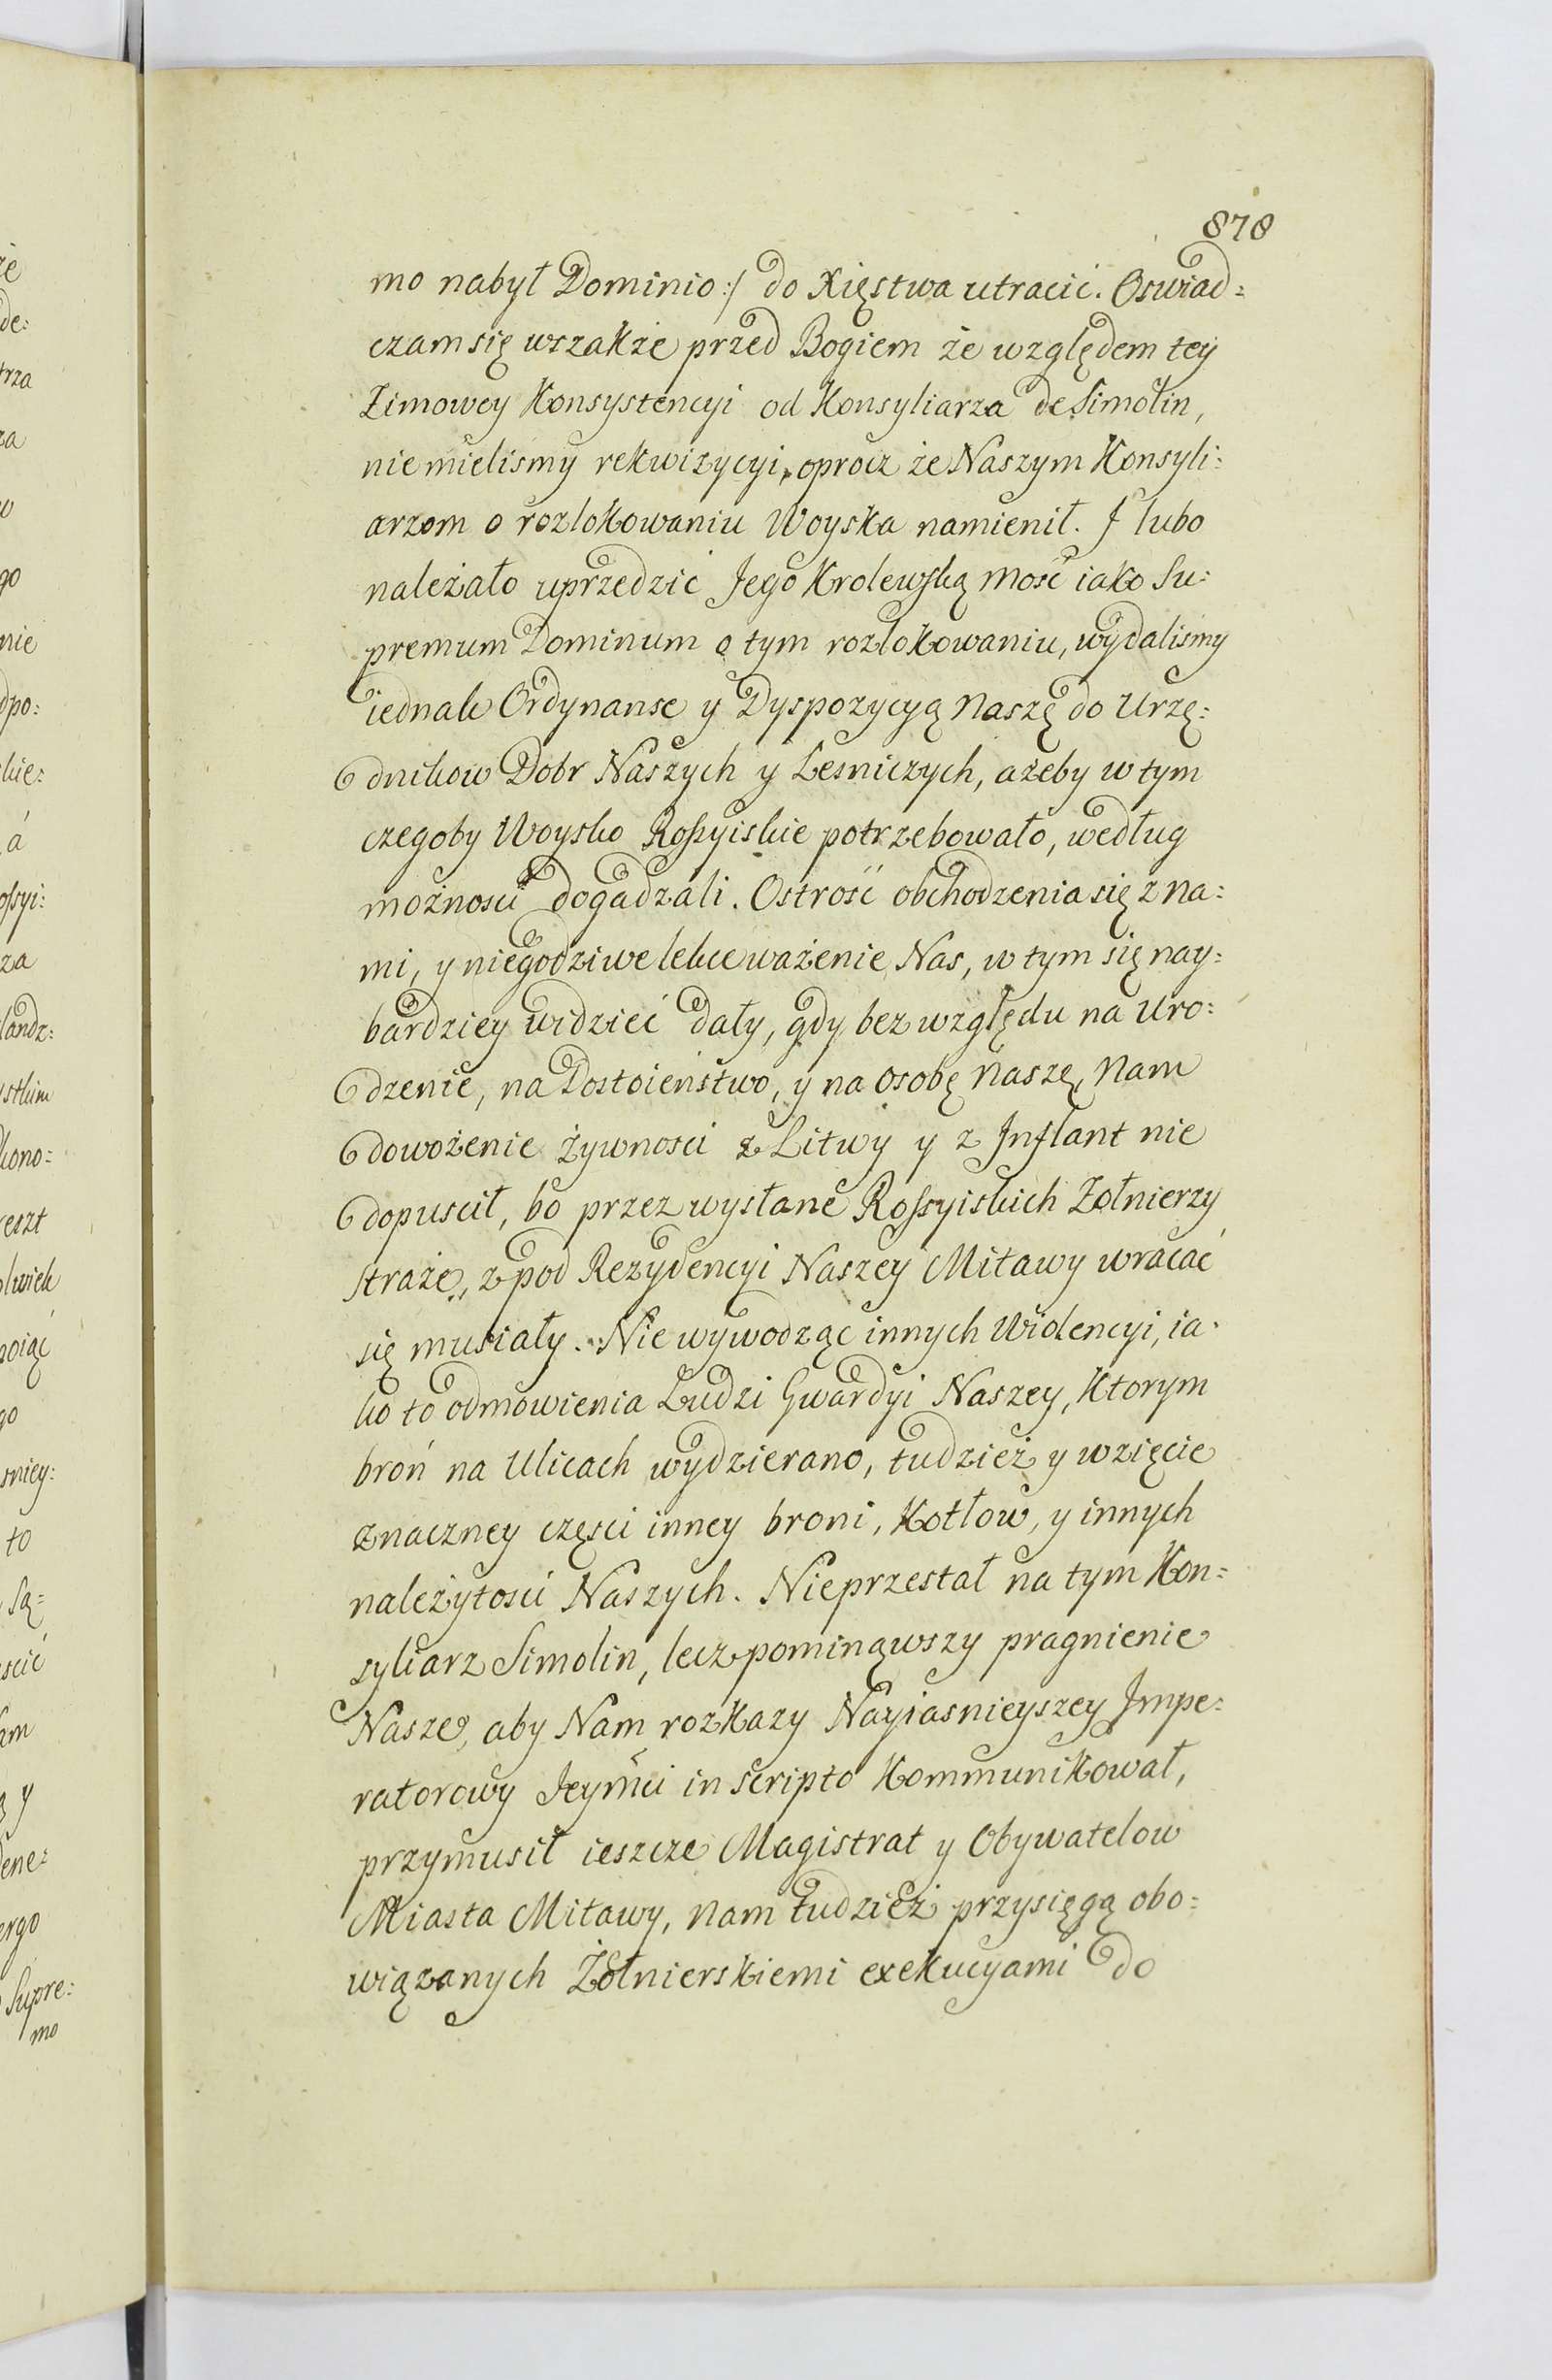 878
mo nabył Dominio :/ do Xięstwa utracić. Oswiad=
czam się wszakże przed Bogiem że względem tey
Zimowey Konsystencyi od Konsyliarza de Simolin,
nie mielismy rekwizycyi, oprocz że Naszym Konsyli=
arzom o rozlokowaniu Woyska namienił. I lubo
należało uprzedzić Jego Krolewską Mość iako Su=
premum Dominum o tym rozlokowaniu, wydalismy
iednak Ordynanse y Dyspozycyą Naszę do Urzę=
dnikow Dobr Naszych y Lesniczych, ażeby w tym
czegoby Woysko Rossyiskie potrzebowało, według
możnosci dogadzali. Ostrość obchodzenia się z na=
mi, y niegodziwe lekceważenie Nas, w tym się nay=
bardziey widzieć dały, gdy bez względu na Uro=
dzenie, na Dostoieństwo, y na Osobę Naszę, Nam
dowożenie żywnosci z Litwy y z Inflant nie
dopuscił, bo przez wysłane Rossyiskich Zołnierzy
straże, z pod Rezydencyi Naszey Mitawy wracać
się musiały. Nie wywodząc innych Wiolencyi, ia=
ko to odmowienia Ludzi Gwardyi Naszey, Ktorym
broń na Ulicach wydzierano, tudzież y wzięcie
znaczney częsci inney broni, Kotłow, y innych
należytosci Naszych. Nieprzestał na tym Kon=
syliarz Simolin, lecz pominąwszy pragnienie
Nasze, aby Nam rozkazy Nayiasnieyszey Impe=
ratorowy Jeymci in scripto Kommunikował,
przymusił ieszcze Magistrat y Obywatelow
Miasta Mitawy, Nam tudzież przysięgą obo=
wiązanych Żołnierskiemi exekucyami do